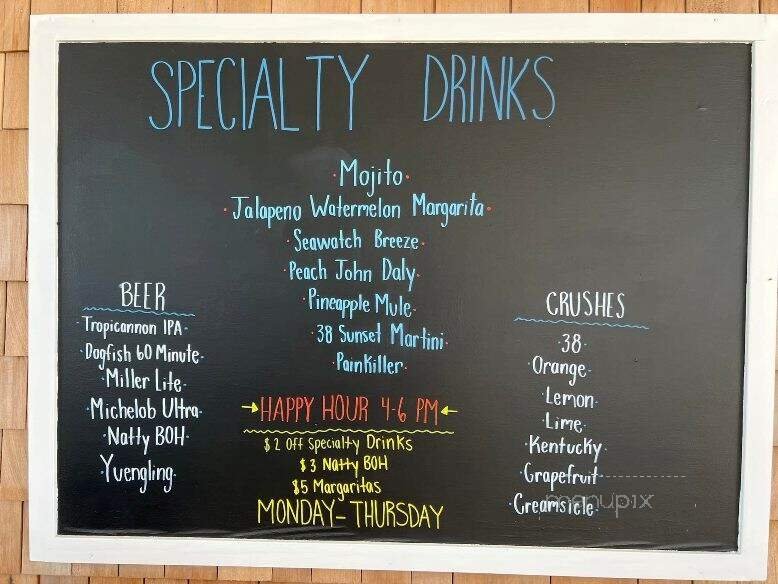 SPECIALTY DRINKS
·Mojito·
·Jalapeno Watermelon Margarita·
·Seawatch Breeze·
·Peach John Daly·
·Pineapple Mule·
·38 Sunset Martini·
·Painkiller·
BEER
·Tropicannon IPA·
·Dogfish 60 Minute·
·Miller Lite·
·Michelob Ultra·
·Natty BOH·
·Yuengling·
→HAPPY HOUR 4-6 PM←
$2 Off Specialty Drinks
$3 Natty BOH
$5 Margaritas
MONDAY-THURSDAY
CRUSHES
·38·
·Orange·
·Lemon·
·Lime·
·Kentucky·
·Grapefruit·
·Creamsicle·
menupix